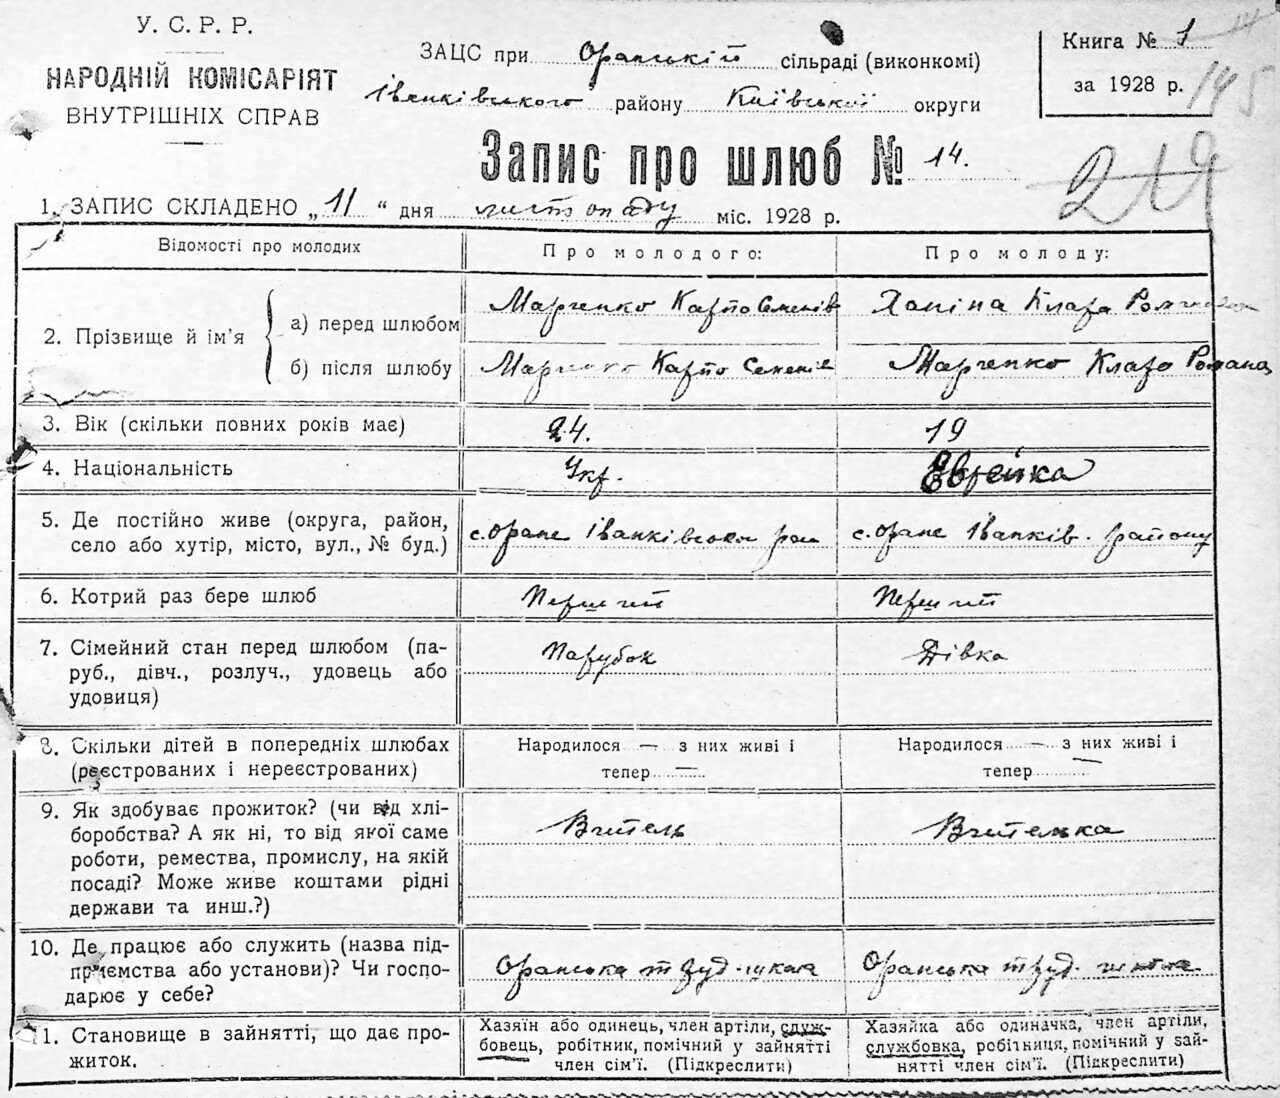 У. С. Р. Р.
НАРОДНІЙ КОМІСАРІЯТ
ВНУТРІШНІХ СПРАВ
ЗАЦС при Оранській сільраді (виконкомі)
Іванківського району Київської округи
Книга № 1
за 1928 р.
145
Запис про шлюб № 14.
1. ЗАПИС СКЛАДЕНО „11“ дня листопаду міс. 1928 р.
Відомості про молодих
Про молодого:
Про молоду:
2. Прізвище й ім'я
а) перед шлюбом
Марченко Карпо Семенів
Хапіна Клара
б) після шлюбу
Марченко Карпо Семенів
Марченко Клара Романів
3. Вік (скільки повних років має)
24.
19
4. Національність
Укр.
Еврейка
5. Де постійно живе (округа, район, село або хутір, місто, вул., № буд.)
с. Оране Іванківська рай
с. Оране Іванків. району
6. Котрий раз бере шлюб
Перший
Перший
7. Сімейний стан перед шлюбом (паруб., дівч., розлуч., удовець або удовиця)
Парубок
Дівка
8. Скільки дітей в попередніх шлюбах (реєстрованих і нереєстрованих)
Народилося — з них живі і тепер —
Народилося — з них живі і тепер —
9. Як здобуває прожиток? (чи від хліборобства? А як ні, то від якої саме роботи, ремества, промислу, на якій посаді? Може живе коштами рідні держави та инш.?)
Вчитель
Вчителька
10. Де працює або служить (назва підприємства або установи)? Чи господарює у себе?
Оранська труд. школа
Оранська труд. школа
11. Становище в зайнятті, що дає прожиток.
Хазяїн або одинець, член артілі, службовець, робітник, помічний у зайнятті член сім'ї. (Підкреслити)
Хазяйка або одиначка, член артіли, службовка, робітниця, помічний у зайнятті член сім'ї. (Підкреслити)